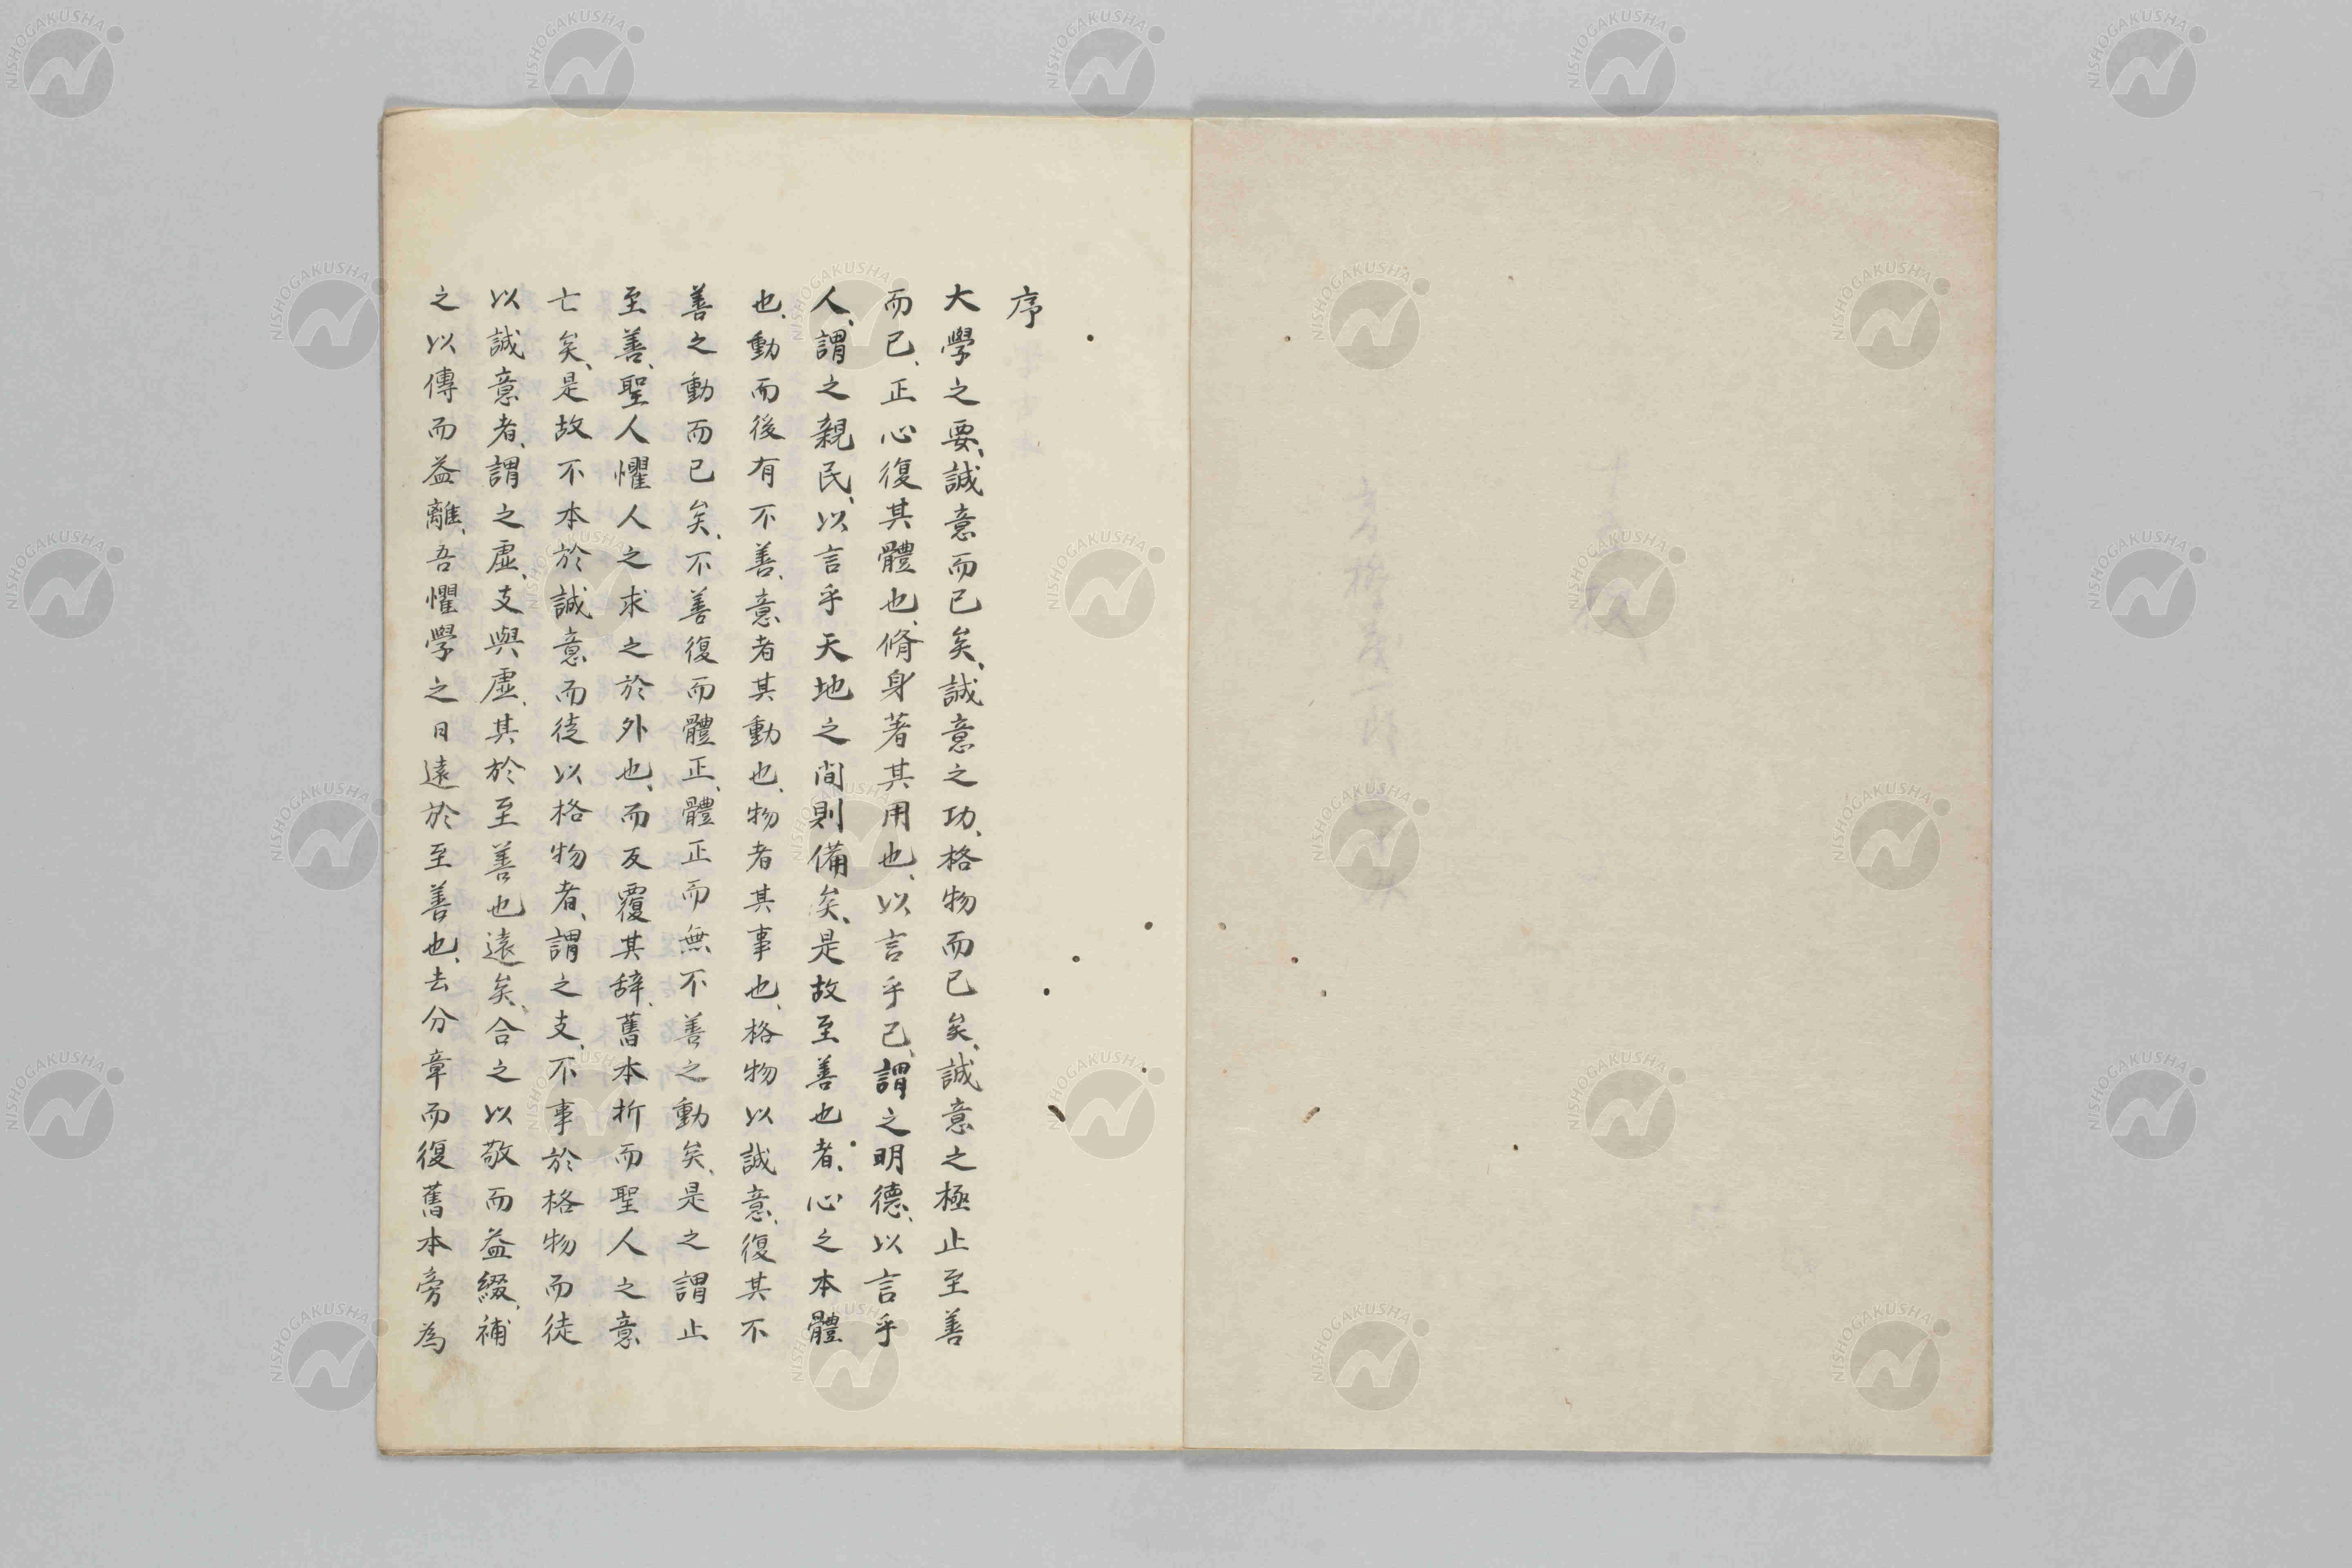 序
大學之要、誠意而已矣、誠意之功、格物而已矣、誠意之極止至善
而已、正心復其體也、脩身著其用也、以言乎己、謂之明德、以言乎
人、謂之親民、以言乎天地之間則備矣、是故至善也者、心之本體
也、動而後有不善、意者其動也、物者其事也、格物以誠意、復其不
善之動而已矣、不善復而體正、體正而無不善之動矣、是之謂止
至善、聖人懼人之求之於外也、而反覆其辞、舊本析而聖人之意
亡矣、是故不本於誠意而徒以格物者、謂之支、不事於格物而徒
以誠意者、謂之虛、支與虛、其於至善也遠矣、合之以敬而益綴、補
之以傳而益離、吾懼學之日遠於至善也、去分章而復舊本旁為
NISHOGAKUSHA